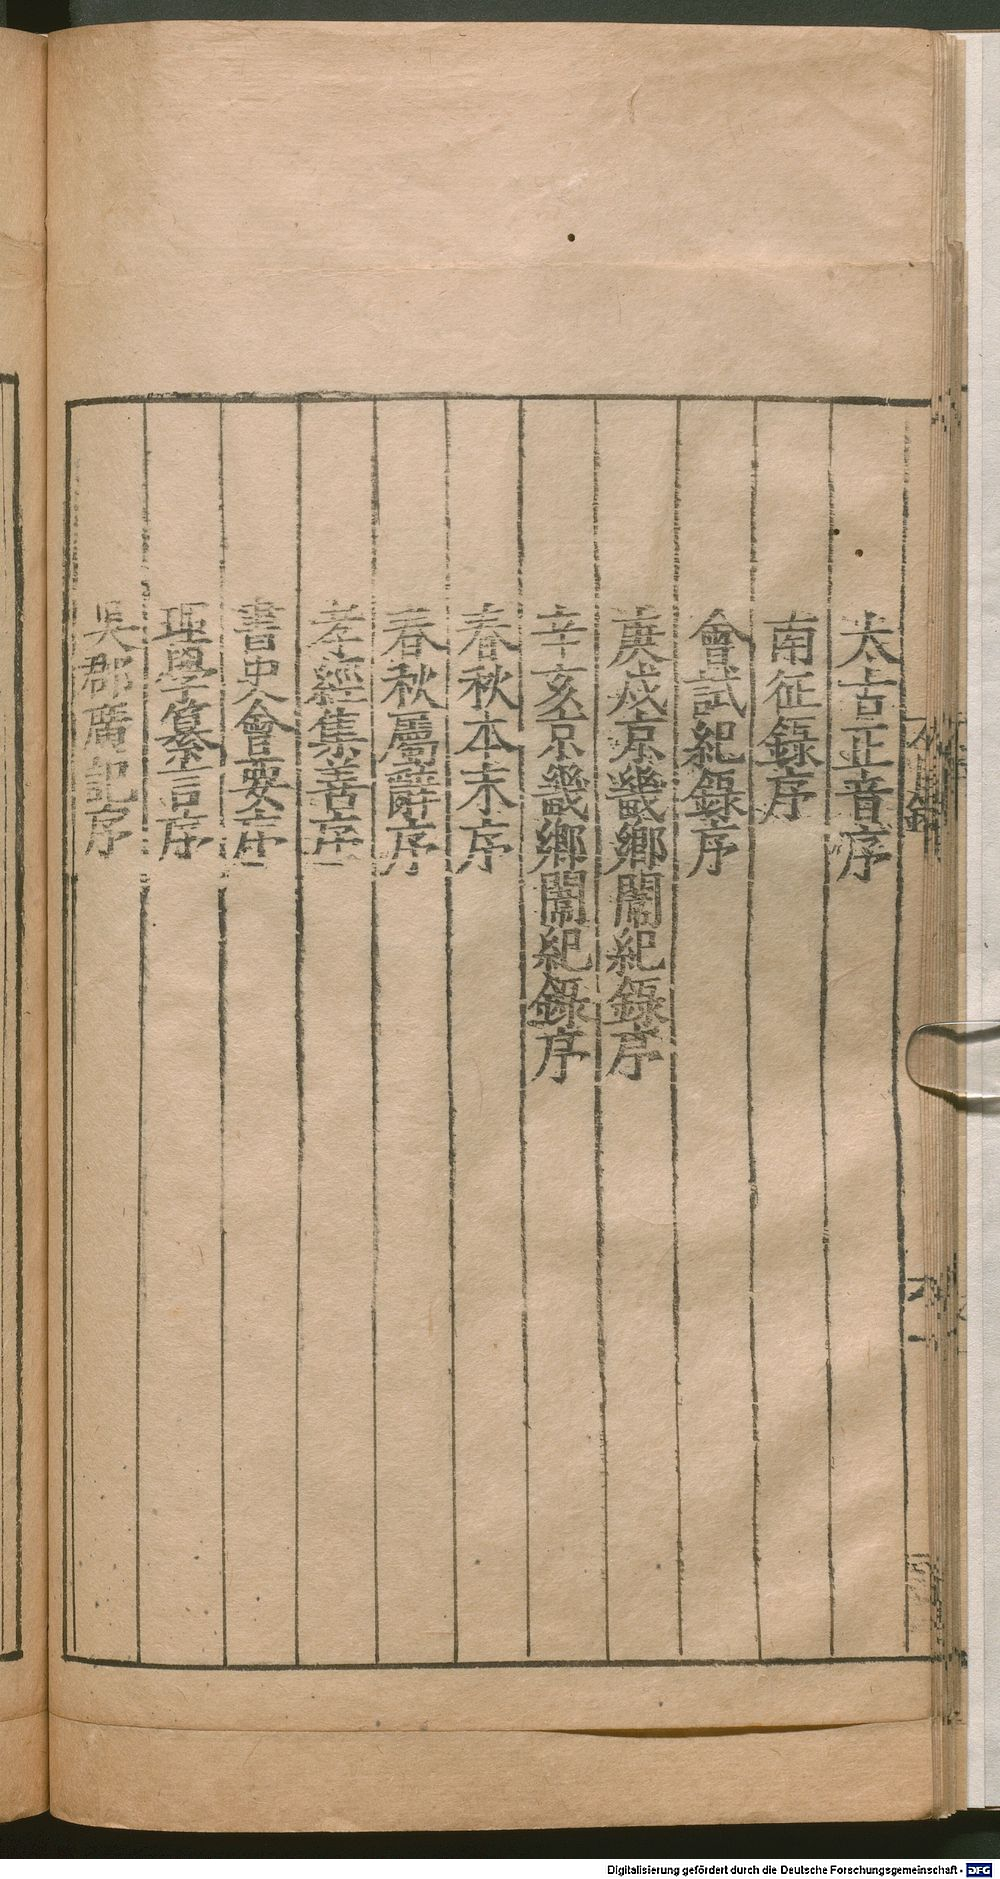 太古正音序
南征錄序
會試紀錄序
庚戍京畿鄉闈紀錄序
辛亥京畿鄉闈紀錄序
春秋本末序
春秋屬辭序
孝經集善序
書史會要序
理學纂言序
吳郡廣記序
Digitalisierung gefördert durch die Deutsche Forschungsgemeinschaft - DFG